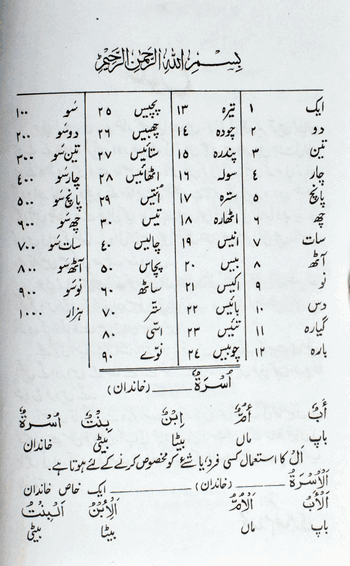 بسم الله الرحمن الرحيم
ایک ۱ تیرہ ۱۳ پچیس ۲۵ سَو ۱۰۰
دو ۲ چودہ ۱۴ چھبیس ۲۶ دو سَو ۲۰۰
تین ۳ پندرہ ۱۵ ستائیس ۲۷ تین سَو ۳۰۰
چار ۴ سولہ ۱۶ اٹھائیس ۲۸ چار سَو ۴۰۰
پانچ ۵ سترہ ۱۷ انتیس ۲۹ پانچ سَو ۵۰۰
چھ ۶ اٹھارہ ۱۸ تیس ۳۰ چھ سَو ۶۰۰
سات ۷ انیس ۱۹ چالیس ۴۰ سات سَو ۷۰۰
آٹھ ۸ بیس ۲۰ پچاس ۵۰ آٹھ سَو ۸۰۰
نو ۹ اکیس ۲۱ ساٹھ ۶۰ نو سَو ۹۰۰
دس ۱۰ بائیس ۲۲ ستر ۷۰ ہزار ۱۰۰۰
گیارہ ۱۱ تئیس ۲۳ اسّی ۸۰
بارہ ۱۲ چوبیس ۲۴ نوّے ۹۰
اُسْرَةٌ (خاندان)
أَبٌ أُمٌّ اِبْنٌ بِنْتٌ اُسْرَةٌ
باپ ماں بیٹا بیٹی خاندان
اَلْ کا استعمال کسی فرد یا شئے کو مخصوص کرنے کے لئے ہوتا ہے۔
اَلْاُسْرَةُ (خاندان) ایک خاص خاندان
اَلْأَبُ اَلْاُمُّ اَلْاِبْنُ اَلْبِنْتُ
باپ ماں بیٹا بیٹی